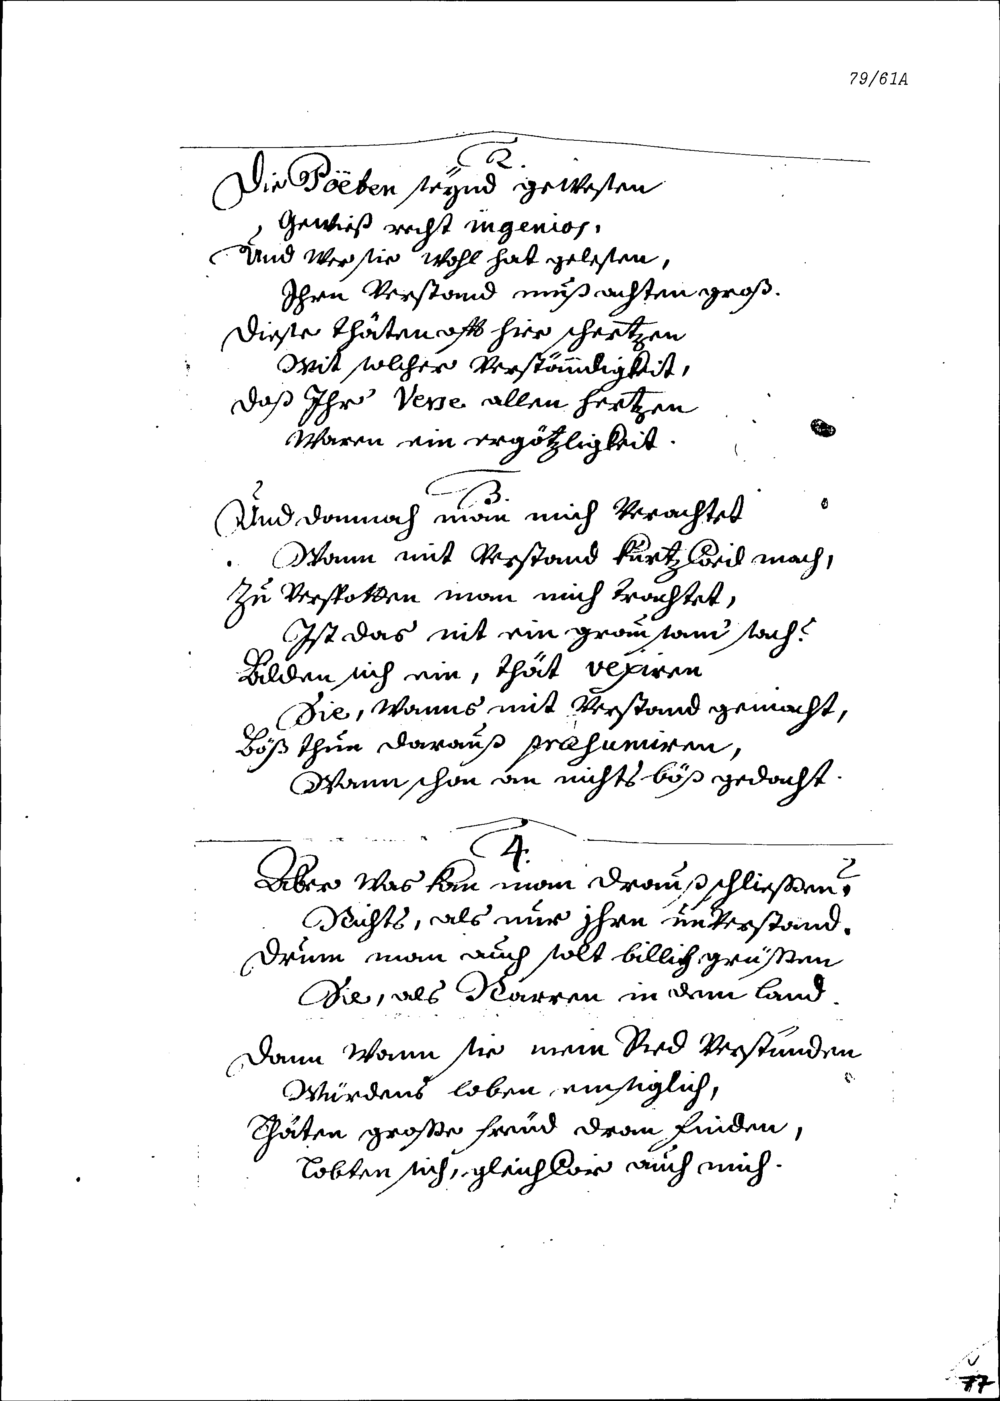 79/61A
2.
Die Poëten seÿnd gewesen
Gewiß recht ingenios,
Und wer sie wohl hat gelesen,
Ihrn Verstand muß achten groß.
Diese thäten offt hier schertzen
Mit solcher Verständigkeit,
Daß Ihre Verse allen hertzen
Waren ein ergötzligkeit.
3.
Und dannoch man mich Verachtet
Wann mit Verstand kurtzweil mach,
Zu Verspotten man mich trachtet,
Ist das nit ein grausam sach?
Bilden sich ein, thät vexiren
Sie, wanns mit Verstand gemacht,
Böß thun darauß præsumiren,
Wann schon an nichts böß gedacht.
4.
Aber was kan man drauß schließen?
Nichts, als nur jhrn unverstand.
Drum man auch solt billich grüssen
Sie, als Narren in dem land.
Dann wann sie mein Lied Verstunden
Würdens loben einsiglich,
Thäten grosse freüd dran finden,
Lobten sich, gleich wie auch mich.
77